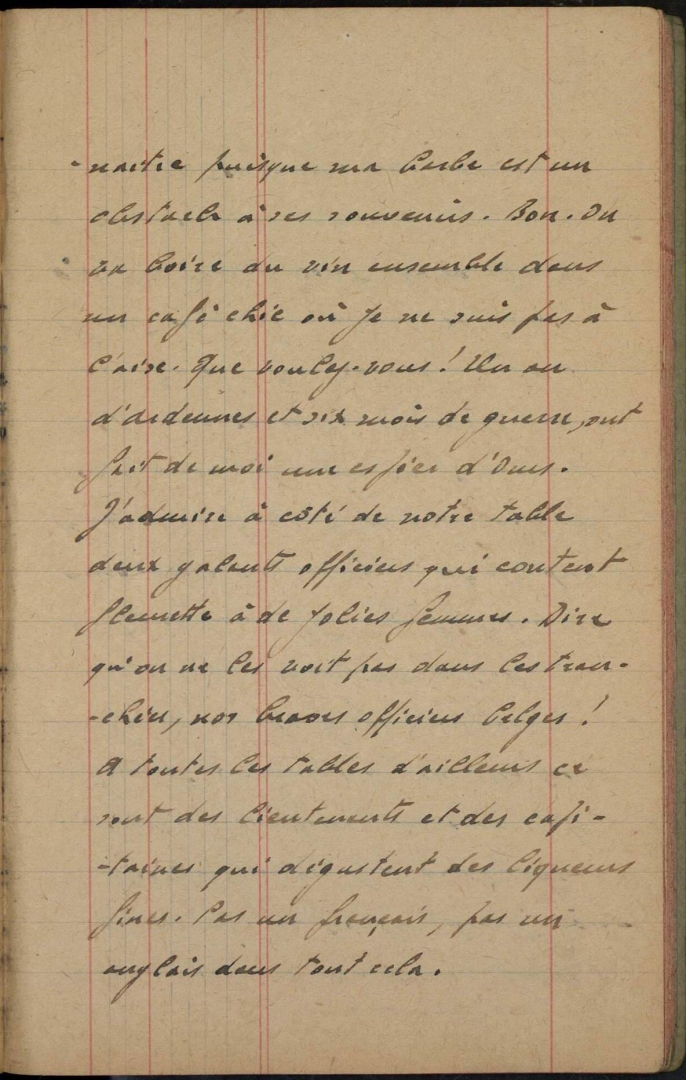 -naitre puisque ma barbe est un
obstacle à ses souvenirs. Bon. On
va boire du vin ensemble dans
un café chic où je ne suis pas à
l'aise. Que voulez-vous! Un an
d'ardennes et six mois de guerre, ont
fait de moi une espèce d'Ours.
J'admire à côté de notre table
deux galants officiers qui content
fleurette à de jolies femmes. Dire
qu'on ne les voit pas dans les tran-
-chées, nos braves officiers belges!
A toutes les tables d'ailleurs ce
sont des lieutenants et des capi-
-taines qui dégustent des liqueurs
fines. Pas un français, pas un
anglais dans tout cela.